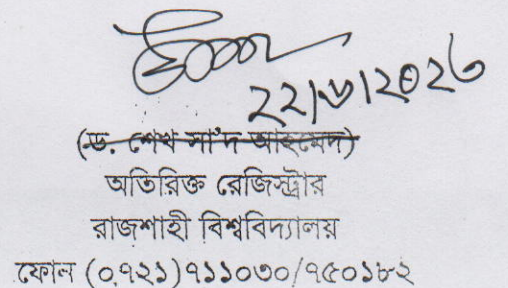 ২২/৬/২০২৩
(ড. শেখ সা'দ আহমেদ)
অতিরিক্ত রেজিস্ট্রার
রাজশাহী বিশ্ববিদ্যালয়
ফোন (০৭২১)৭১১০৩০/৭৫০১৮২